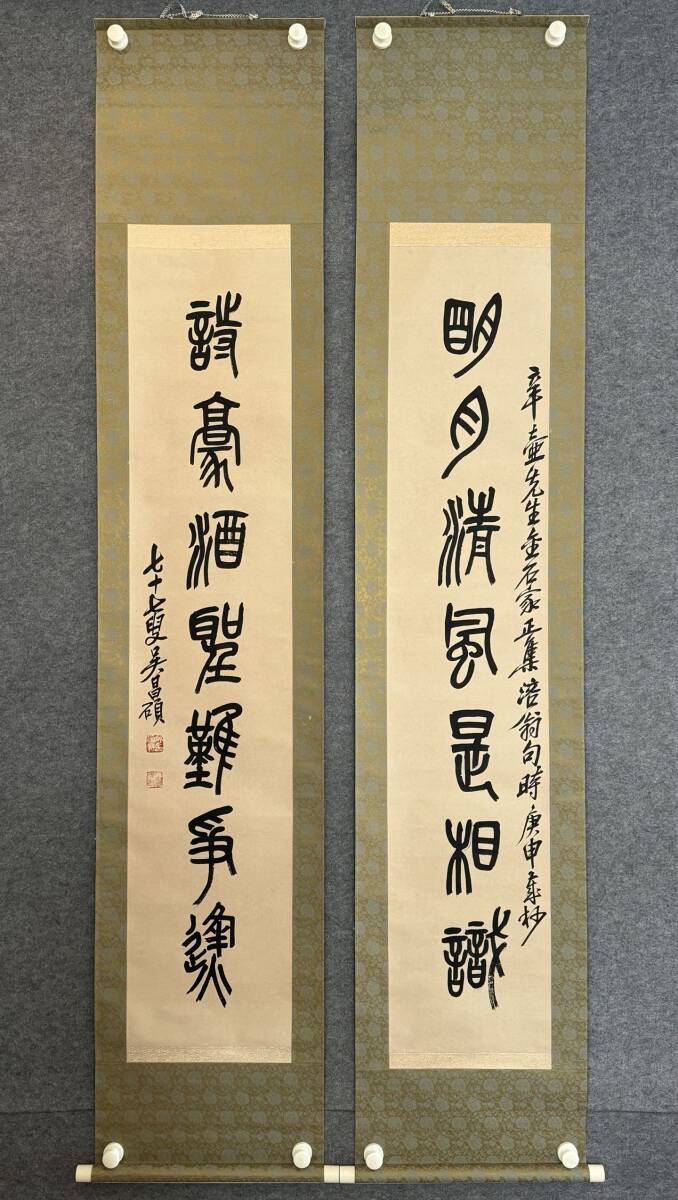 明月清風是相識
辛壺先生金石家正集涪翁句時庚申歲杪
詩豪酒聖難爭逢
七十七叟吳昌碩